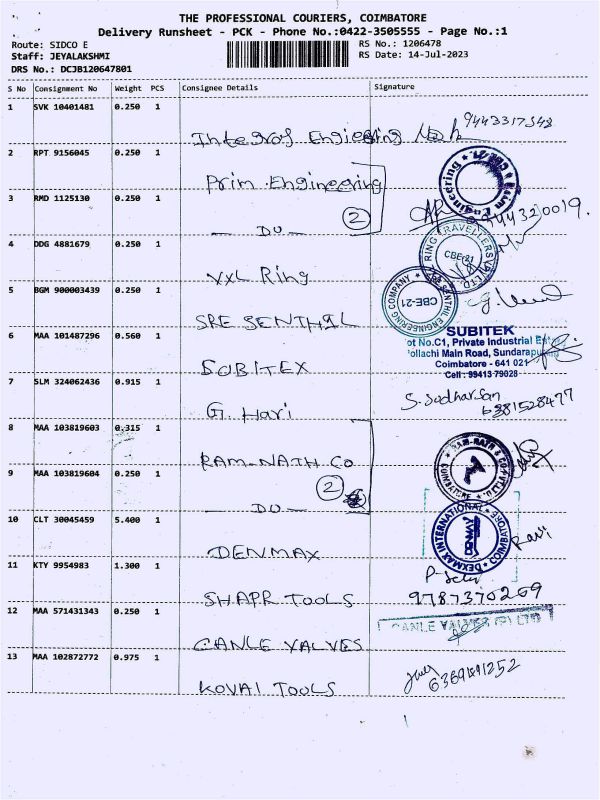 THE PROFESSIONAL COURIERS, COIMBATORE
Delivery Runsheet - PCK - Phone No.:0422-3505555 - Page No.:1
Route: SIDCO E
RS No.: 1206478
Staff: JEYALAKSHMI
RS Date: 14-Jul-2023
DRS No.: DCJB120647801
S No Consignment No Weight PCS Consignee Details Signature
1 SVK 10401481 0.250 1
9443317548
Integral Engieering
2 RPT 9156045 0.250 1
Prim Engineering
3 RMD 1125130 0.250 1
— DO — 2
4 DDG 4881679 0.250 1
RING TRAVELLERS PVT LTD.
CBE-21
VXL Ring
5 BGM 900003439 0.250 1
SRE SENTHIL ENGINEERING COMPANY
CBE-21
SRE SENTHIL
6 MAA 101487296 0.560 1
SUBITEK
ot No.C1, Private Industrial
ollachi Main Road, Sundarapu
Coimbatore - 641 021
Cell : 99413 79028
SUBITEX
7 SLM 324062436 0.915 1
S. Sodharsan
6381528477
G. Hari
8 MAA 103819603 0.315 1
RAM-NATH CO
9 MAA 103819604 0.250 1
— DO — 2
10 CLT 30045459 5.400 1
DEXMAX INTERNATIONAL COIMBATORE
Ravi
DENMAX
11 KTY 9954983 1.300 1
9787370269
SHAPR TOOLS
12 MAA 571431343 0.250 1
CANLE VALVES (P) LTD
CANLE VALVES
13 MAA 102872772 0.975 1
KOVAI TOOLS